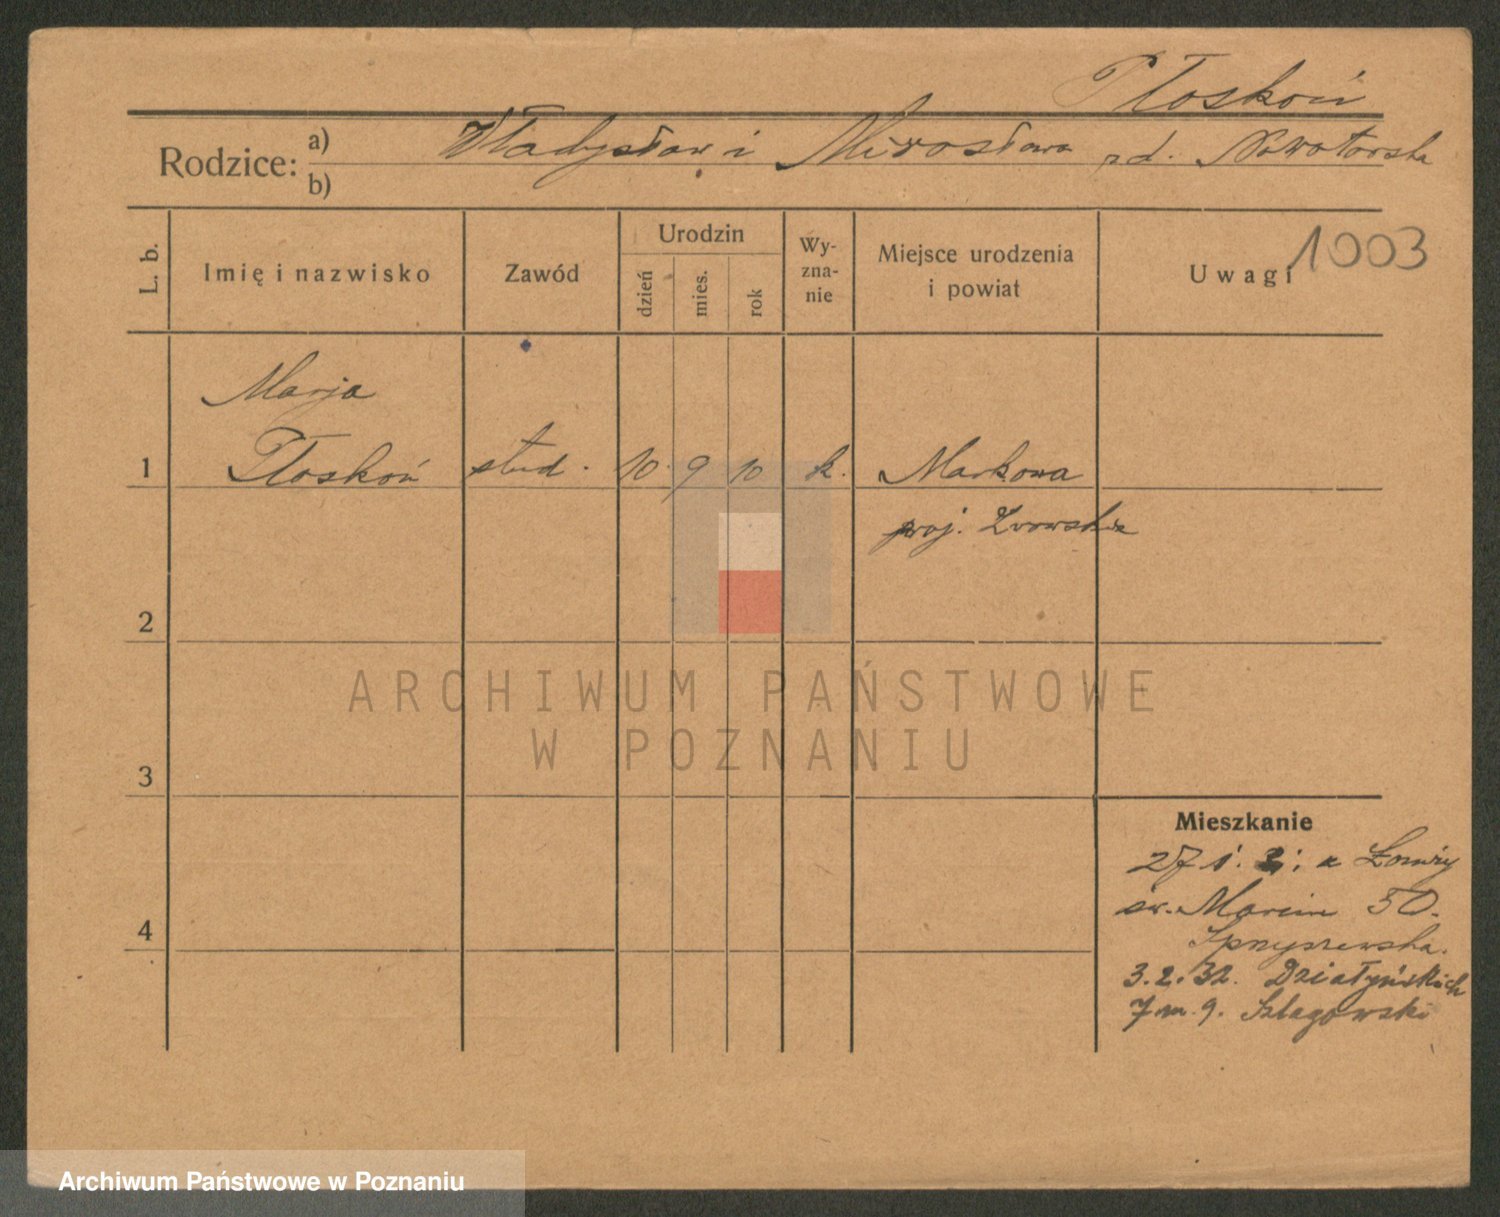 Płoskoń
Rodzice: a) Władysław i Mirosława zd. Nowotorska
b)
L. b. Imię i nazwisko Zawód Urodzin dzień mies. rok Wy-zna-nie Miejsce urodzenia i powiat Uwagi 1003
Marja
1 Płoskoń stud. 10. 9 10 k. Markowa
woj. Lwowskie
2
3
4
Mieszkanie
27 1. z Łomży
św. Marcin 50.
3.2.32. Działyńskich
7 m. 9. Szlagowski
ARCHIWUM PAŃSTWOWE
W POZNANIU
Archiwum Państwowe w Poznaniu